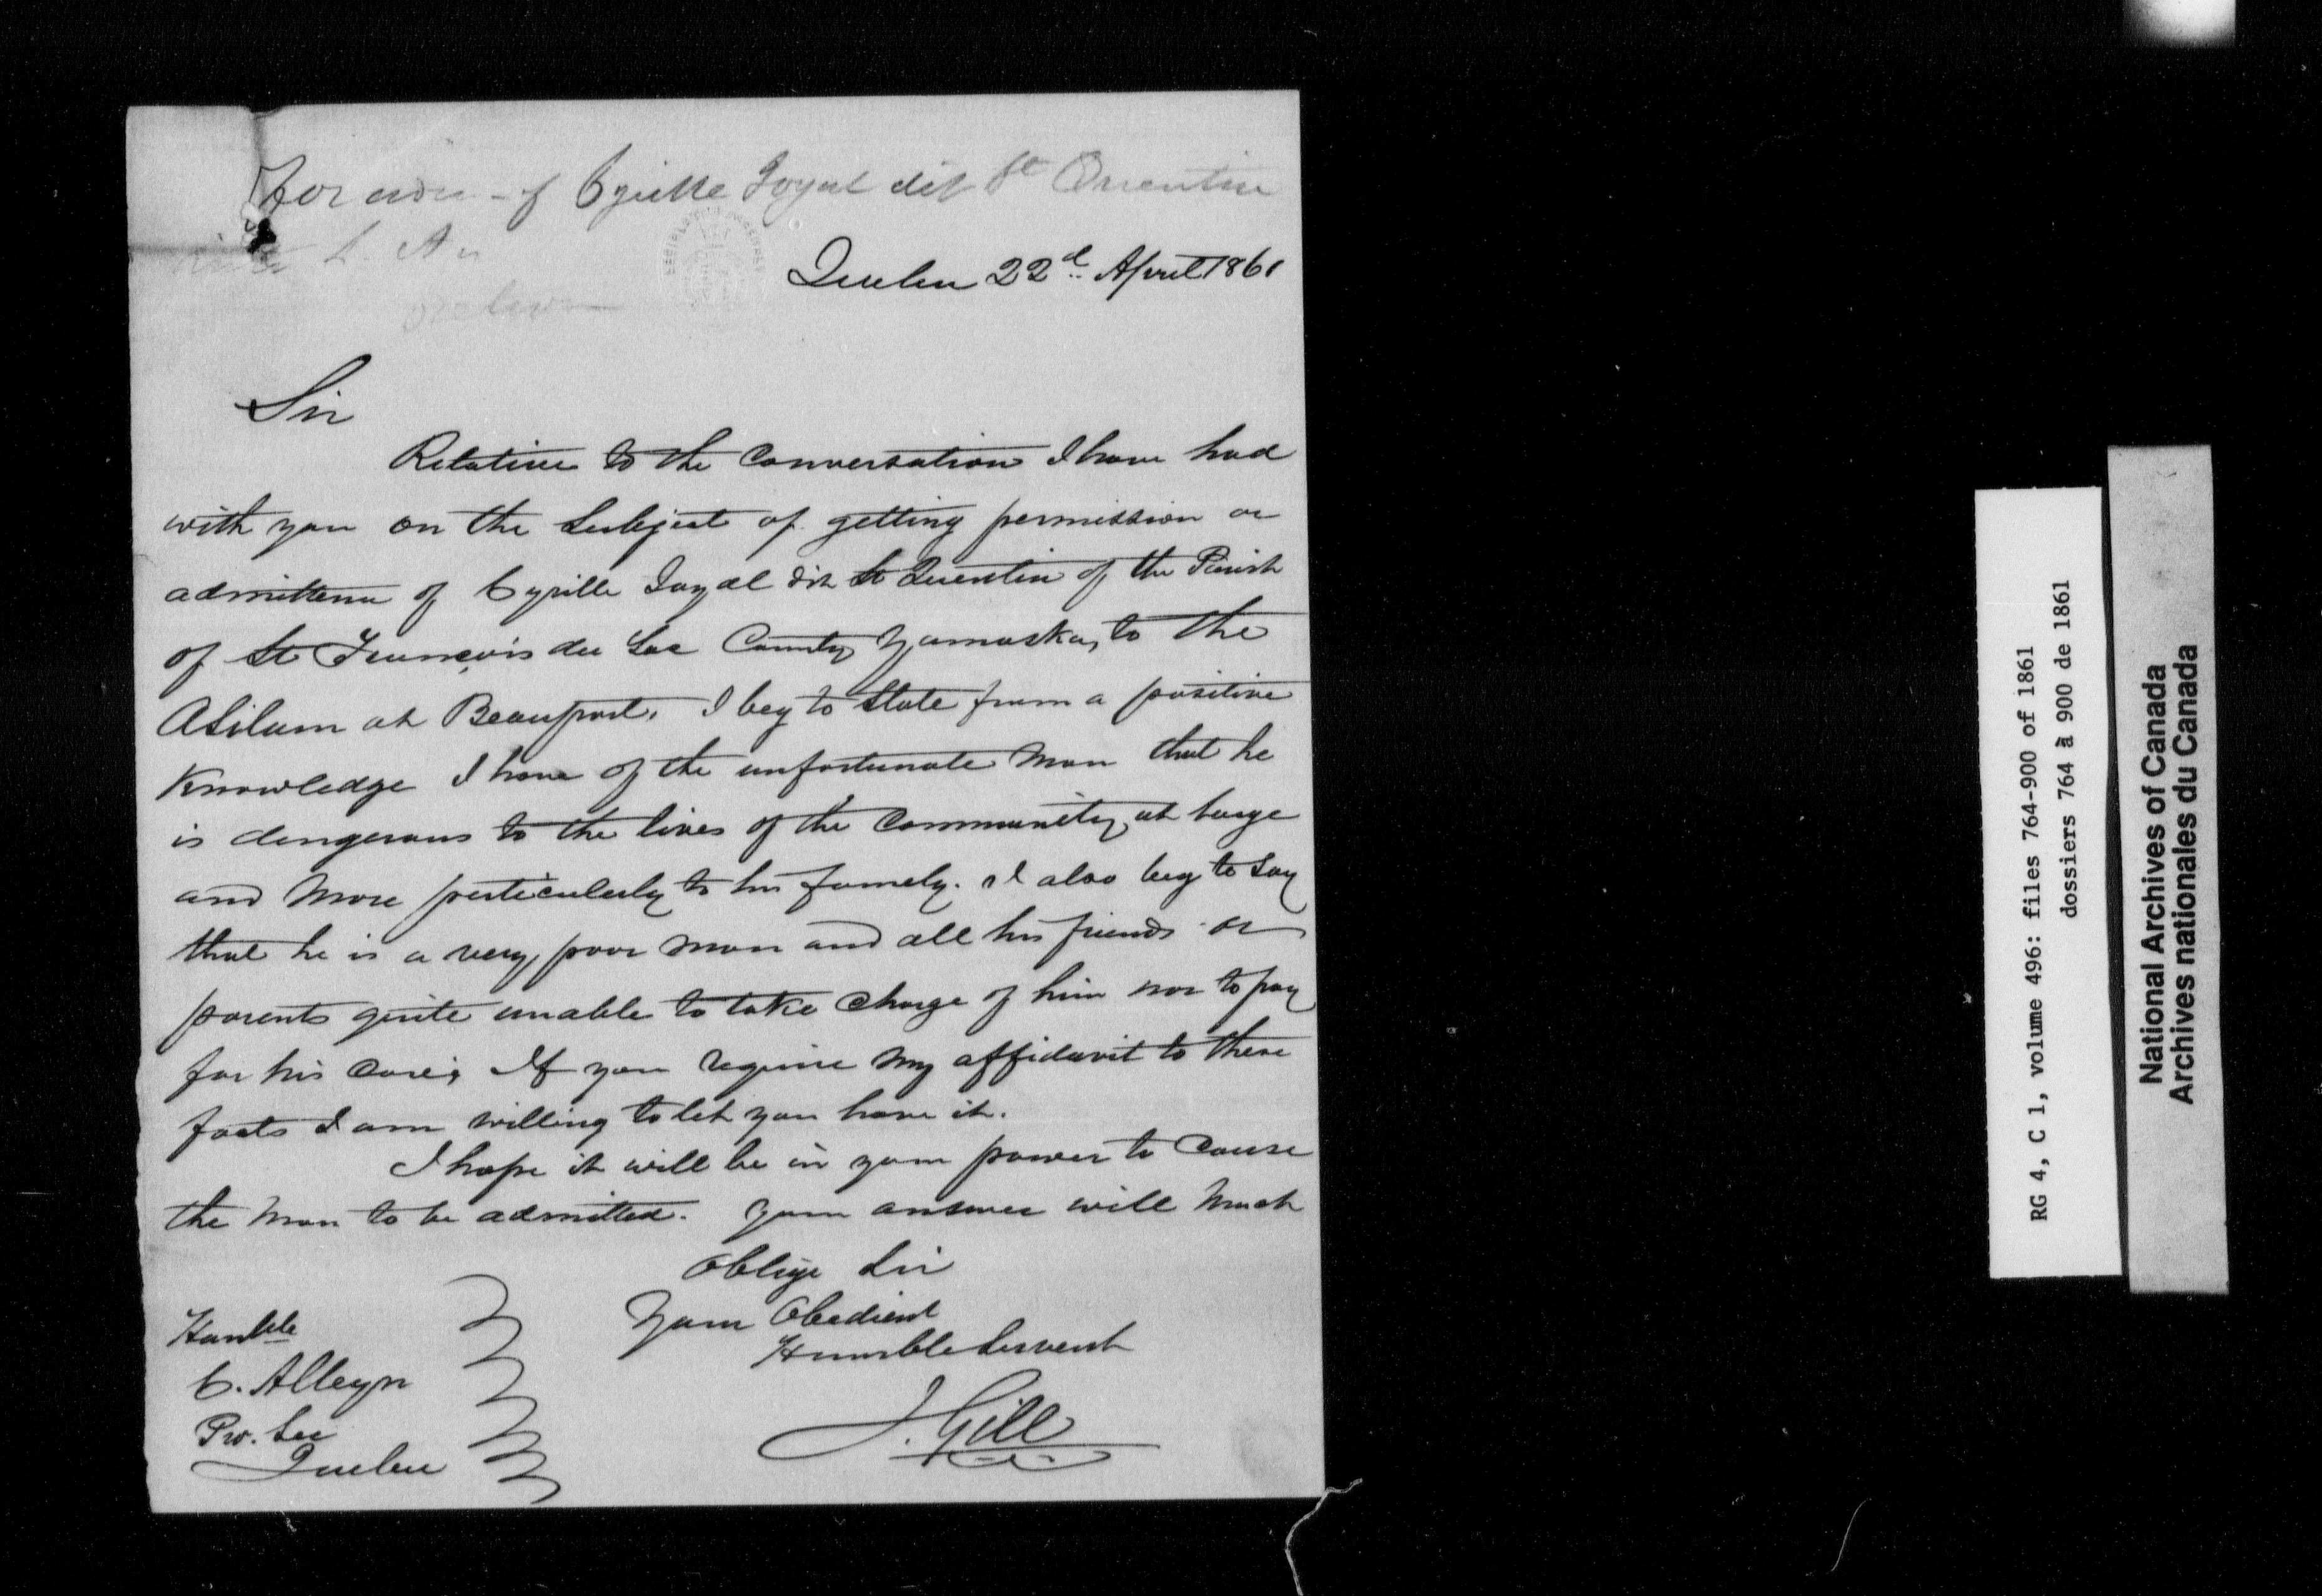 For adm - of Cyrille Joyal dit St Quentin
Quebec 22d. April 1861
Sir
Relative to the Conversation I have had
with you on the Subject of getting permission or
admittence of Cyrille Joyal dit St Quentin of the Parish
of St François du Lac County Yamaska, to the
Asilum at Beauport, I beg to State from a positive
Knowledge I have of the unfortunate Man that he
is dengerous to the lives of the Community at large
and More perticulerly to his famely. I also beg to Say
that he is a very poor Man and all his friends or
parents quite unable to take Charge of him nor to pay
for his Care; If you require My affidavit to these
facts I am willing to let you have it.
I hope it will be in your power to Cause
the Man to be admitted. Your answer will Much
Oblige Sir
Your Obedient
Humble Servent
J. Gill
Honble
C. Alleyn
Pro. Sec
Quebec
RG 4, C 1, volume 496: files 764-900 of 1861
dossiers 764 à 900 de 1861
National Archives of Canada
Archives nationales du Canada